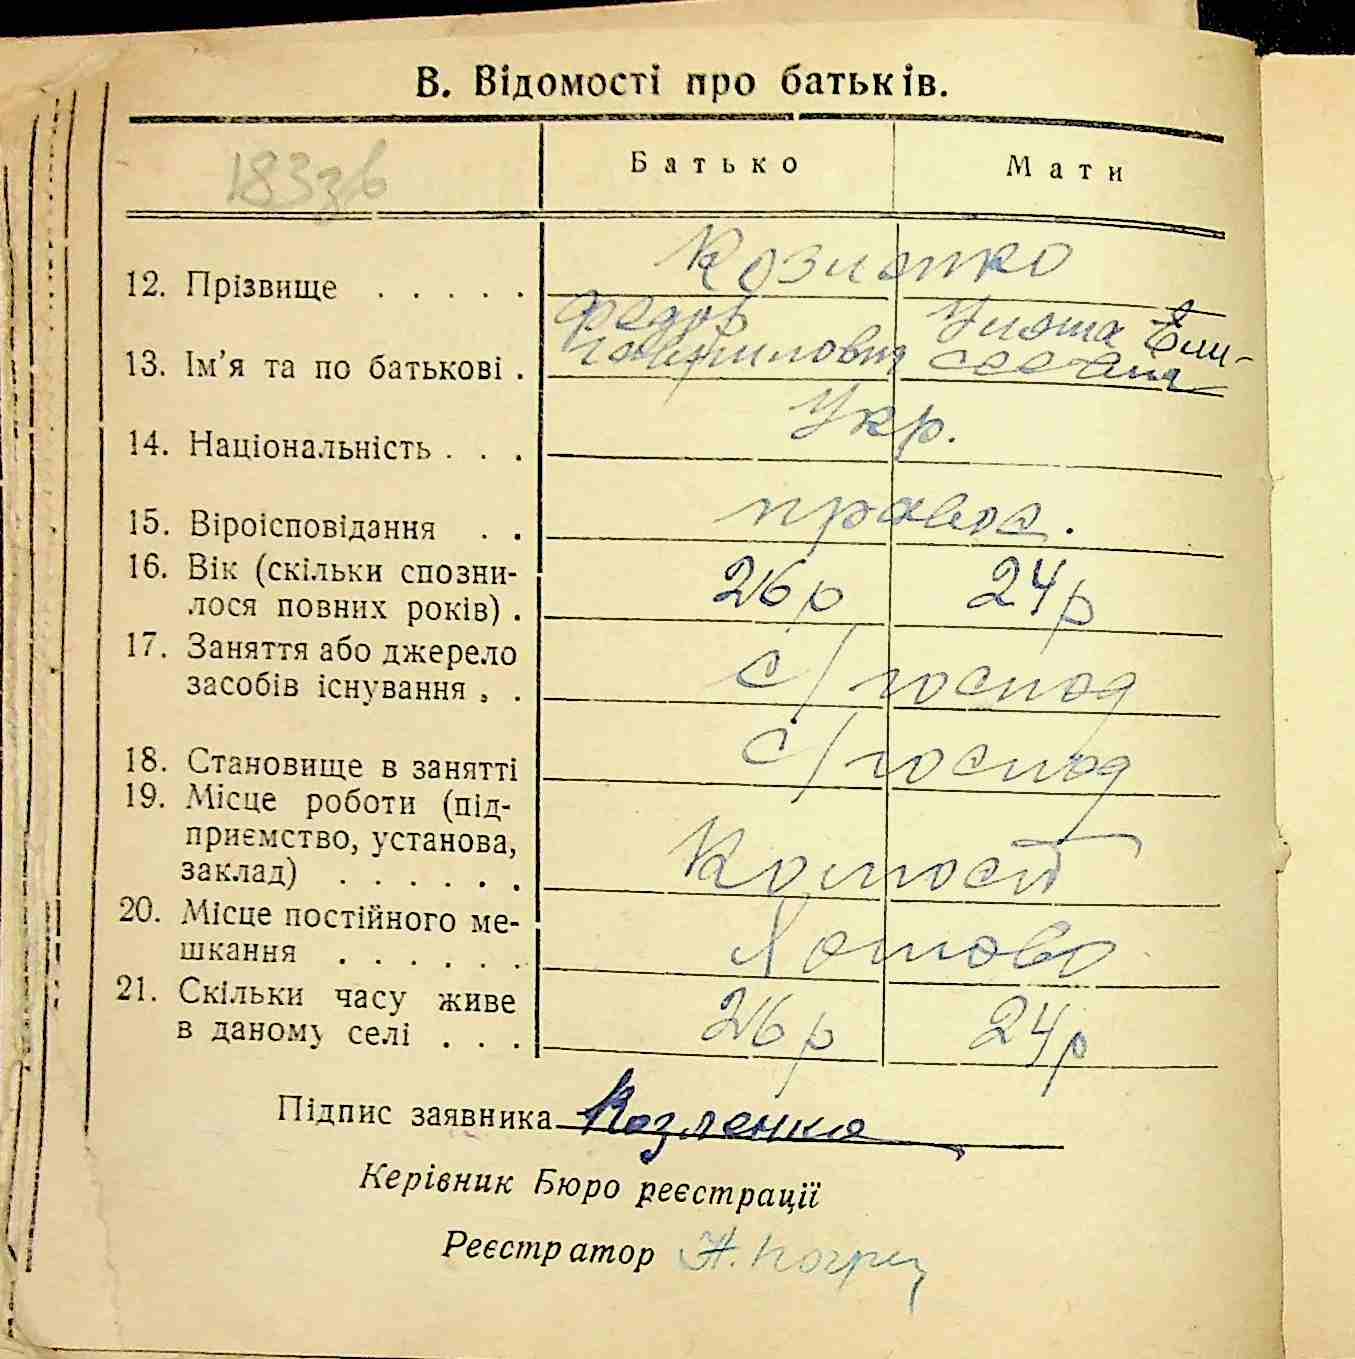 В. Відомості про батьків.
183зв
Батько Мати
12. Прізвище . . . . . Козленко
13. Ім'я та по батькові . Федор Гаврилович Уляна Елисеевна
14. Національність . . . Укр.
15. Віроісповідання . . правос.
16. Вік (скільки спозни-
лося повних років) . 26 р 24 р
17. Заняття або джерело
засобів існування , . с/господ
18. Становище в занятті с/господ
19. Місце роботи (під-
приємство, установа,
заклад) . . . . . .
20. Місце постійного ме-
шкання . . . . . .
21. Скільки часу живе
в даному селі . . . 26 р 24 р
Підпис заявника Козленко
Керівник Бюро реєстрації
Реєстратор